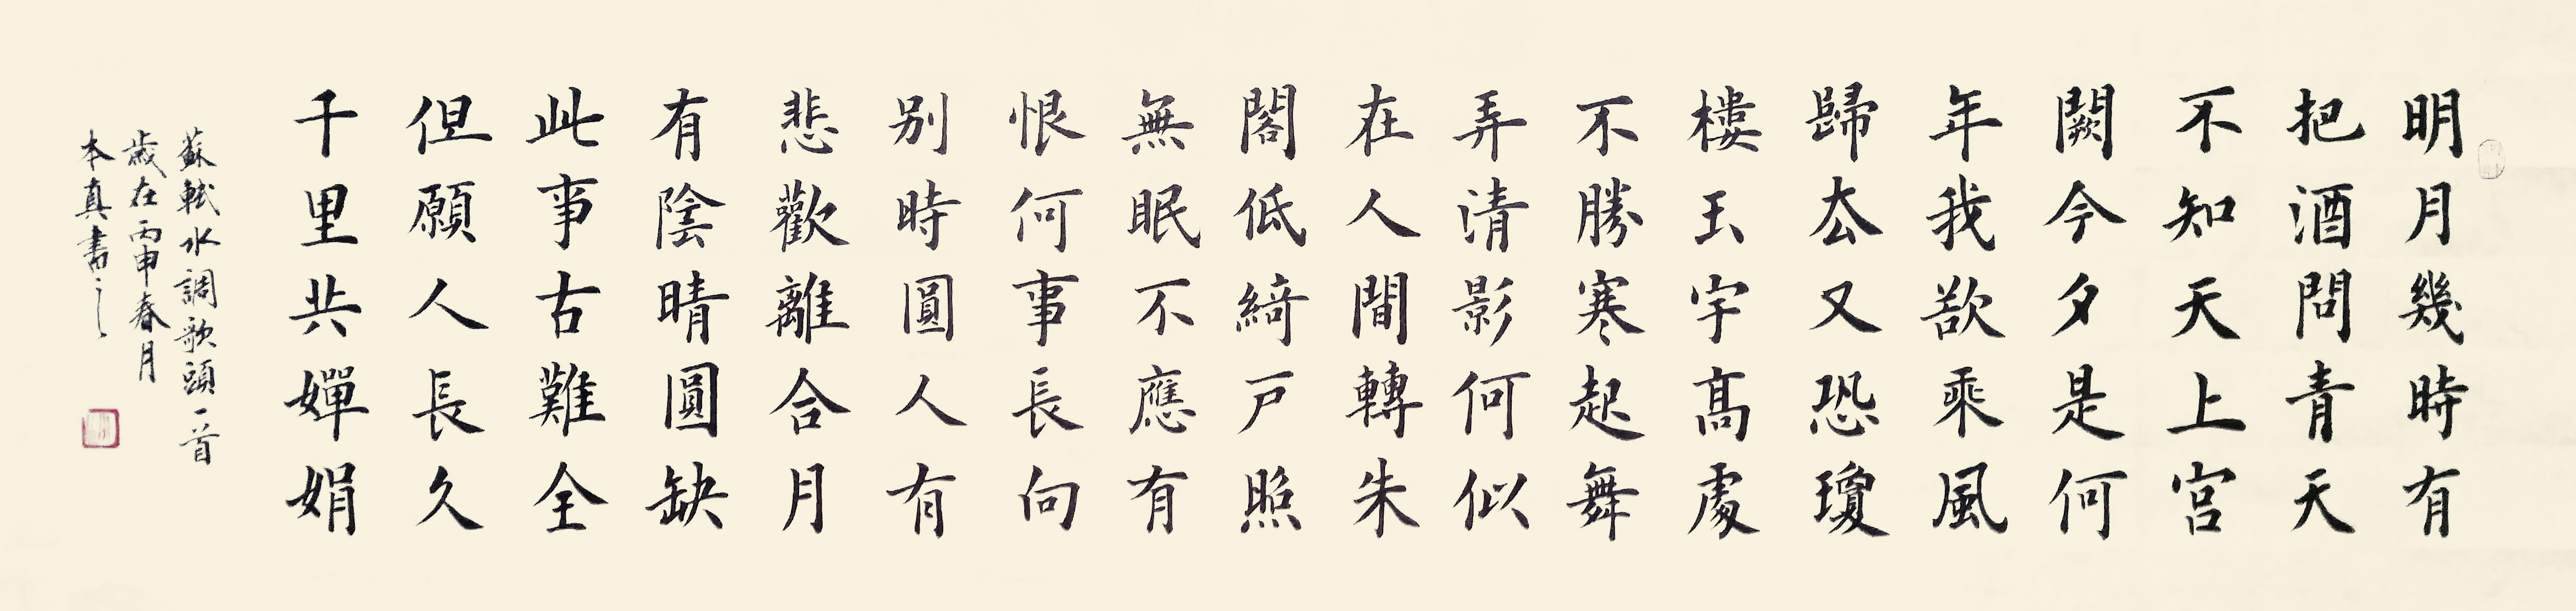 明月幾時有
把酒問青天
不知天上宫
闕今夕是何
年我欲乘風
歸去又恐瓊
樓玉宇高處
不勝寒起舞
弄清影何似
在人間轉朱
閣低綺戶照
無眠不應有
恨何事長向
别時圓人有
悲歡離合月
有陰晴圓缺
此事古難全
但願人長久
千里共嬋娟
蘇軾水調歌頭一首
歲在丙申春月
本真書之